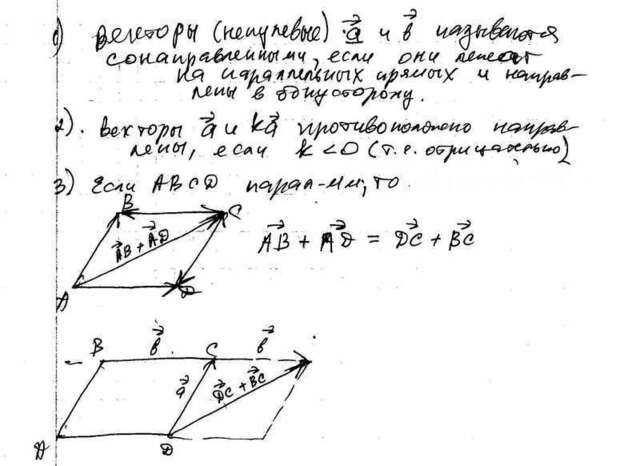 1) Векторы (ненулевые) a и b называются
сонаправленными, если они лежат
на параллельных прямых и направ-
лены в одну сторону.
2). Векторы a и ka противоположно направ-
лены, если k < 0 (т.е. отрицательно)
3) Если ABCD парал-мм, то
B
C
AB + AD
AB + AD = DC + BC
A
D
B
b
C
b
a
DC + BC
A
D